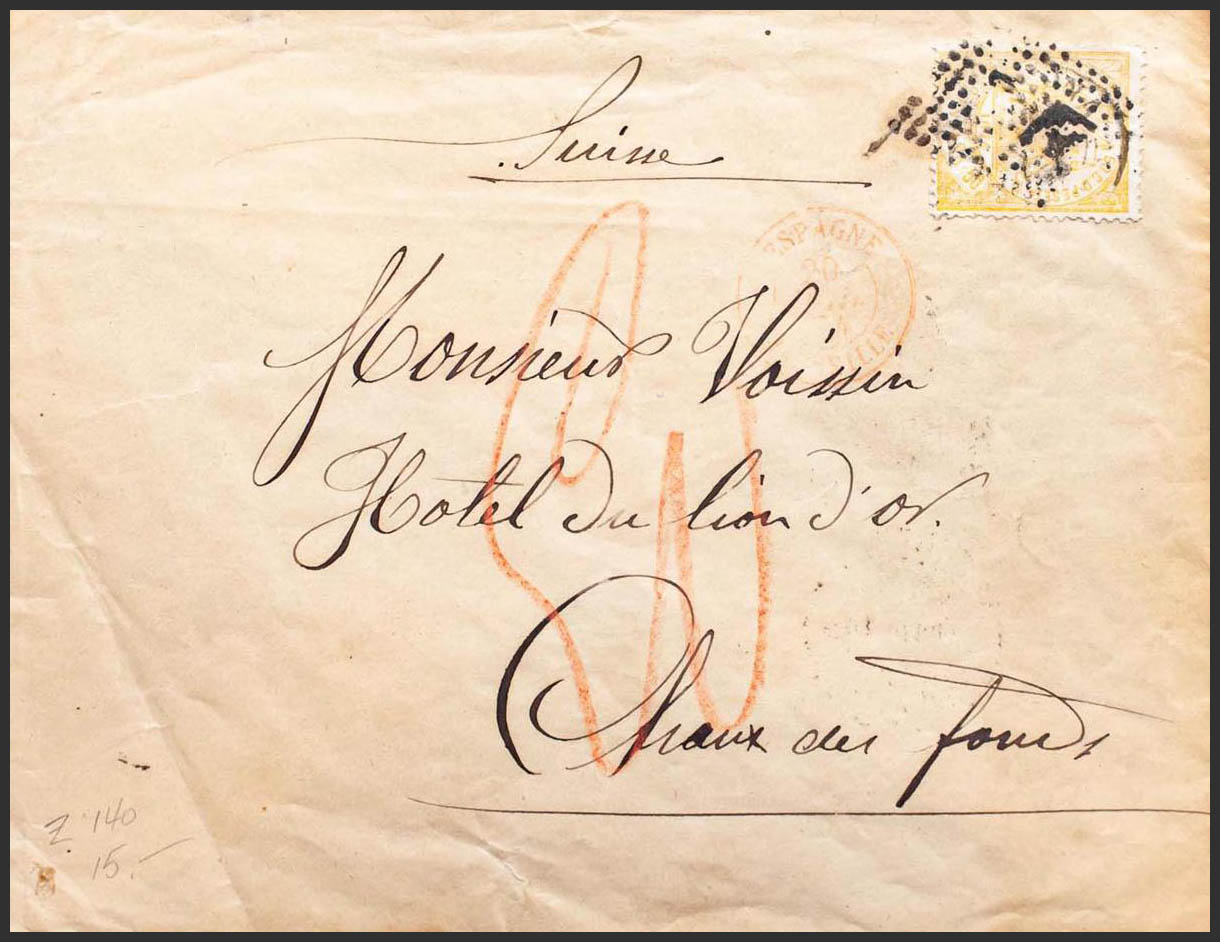 Suisse
ESPAGNE
30
Monsieur Voissin
Hotel du lion d'or.
Chaux des fonds
Z. 140
15.-